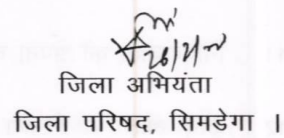 जिला अभियंता
जिला परिषद, सिमडेगा ।